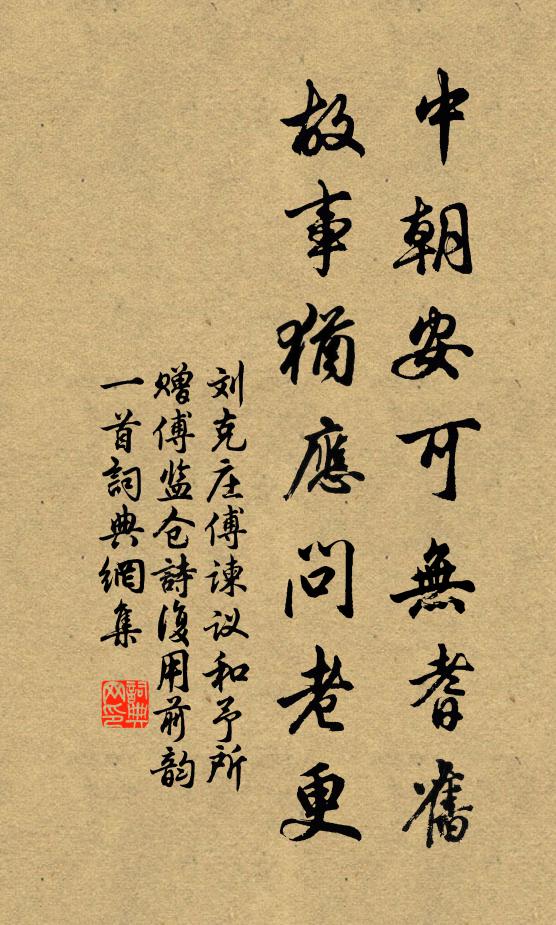 中朝安可無耆舊
故事猶應問老更
刘克庄傅諫议和予所
赠傅监仓詩復用前韵
一首詞典網集
詞典
网印